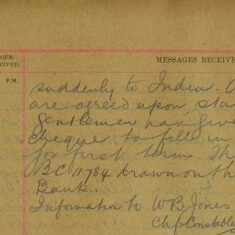 HOUR
RECEIVED.
MESSAGES RECEIVE
P.M.
suddenly to India. A
are agreed upon sta
Gentlemen has give
cheque to fill in
for first term Th
BC 11784 drawn on th
Bank.
Information to W B Jones
Chf Constable